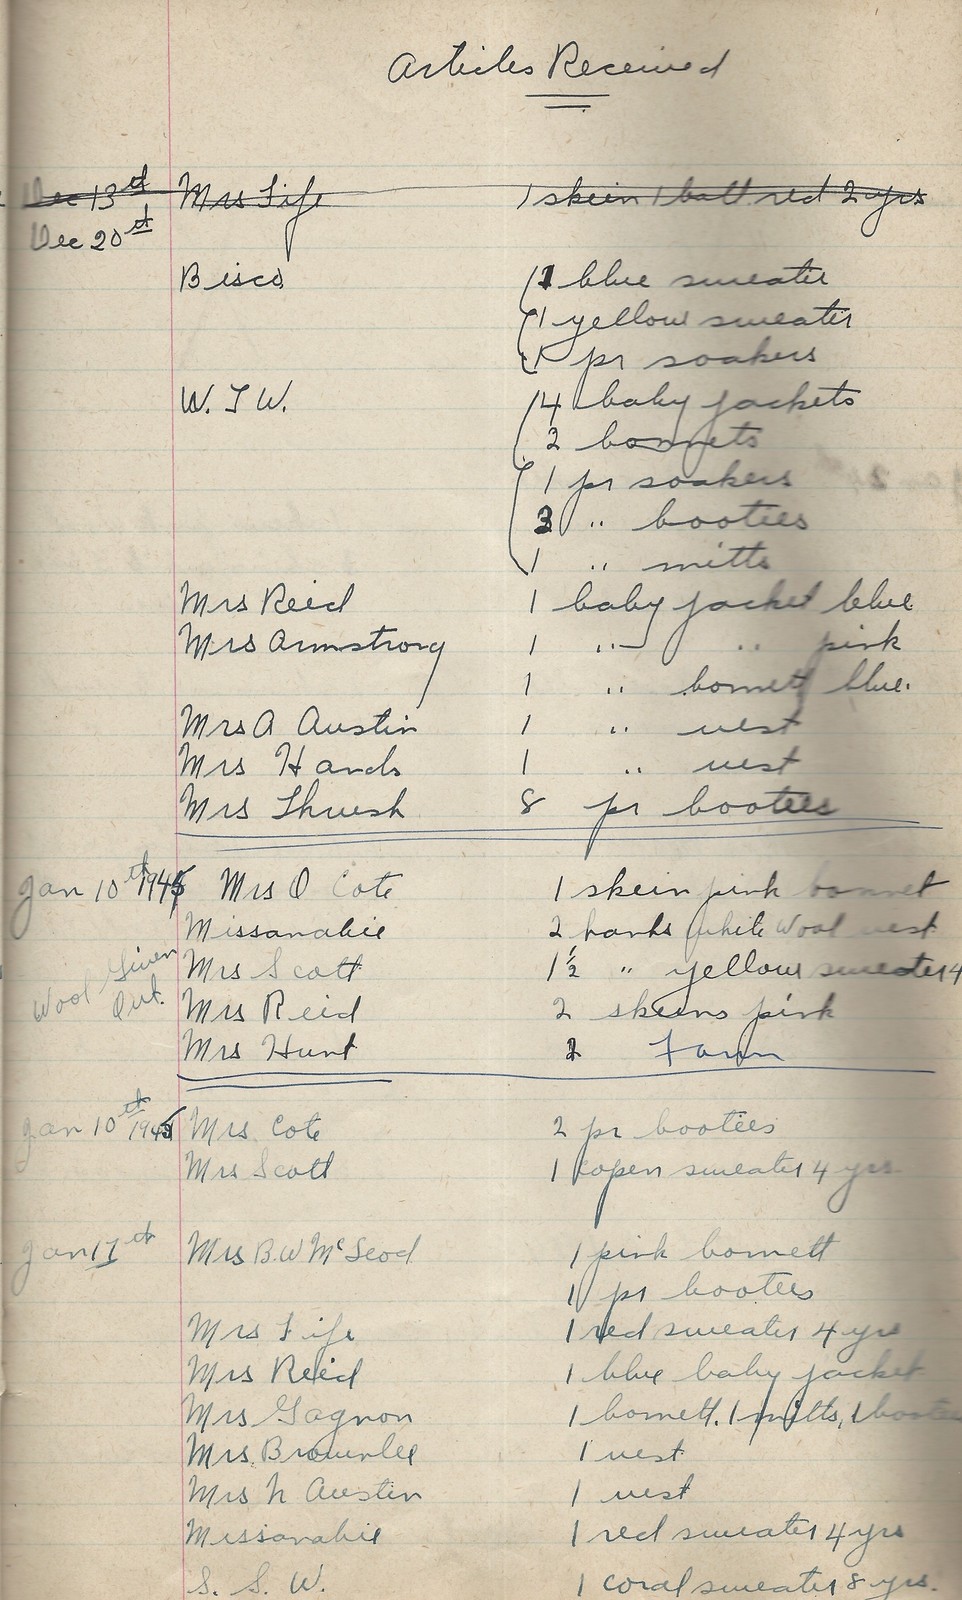 Articles Received
Dec 13th Mrs Fife 1 skein 1 ball red 2 yrs
Dec 20th
Bisco 1 blue sweater
1 yellow sweater
1 pr soakers
W. T W. 4 baby jackets
2 bonnets
1 pr soakers
3 " booties
1 " mitts
Mrs Reid 1 baby jacket blue
Mrs Armstrong 1 " " pink
1 " bonnett blue.
Mrs A Austin 1 " vest
Mrs Hands 1 " vest
Mrs Thrush 8 pr bootees
Jan 10th 1945 Mrs O Cote 1 skein pink bonnet
Missanabie 2 hanks white wool vest
Wool Given Out. Mrs Scott 1½ " yellow sweater 4
Mrs Reid 2 skeins pink
Mrs Hunt 2 Fawn
Jan 10th 1945 Mrs Cote 2 pr bootees
Mrs Scott 1 copen sweater 4 yrs
Jan 17th Mrs B. W McLeod 1 pink bonnett
1 pr bootees
Mrs Fife 1 red sweater 4 yrs
Mrs Reid 1 blue baby jacket
Mrs Gagnon 1 bonnett, 1 mitts, 1
Mrs. Brownlee 1 vest
Mrs N Austin 1 vest
Missanabie 1 red sweater 4 yrs
S. S. W. 1 coral sweater 8 yrs.